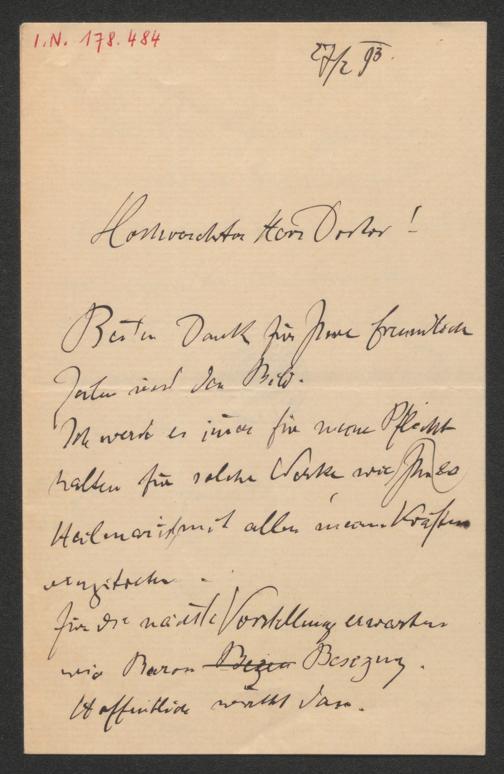 I.N. 178.484
27/2 93.
Hochverehrter Herr Doctor!
Besten Dank für Ihre freundlichen
Zeilen und das Bild.
Ich werde es immer für meine Pflicht
halten für solche Werke wie Ihr
mit allen meinen Kräften
einzutreten.
Für die nächste Vorstellung erwarten
wir Baron Bezecny.
Hoffentlich